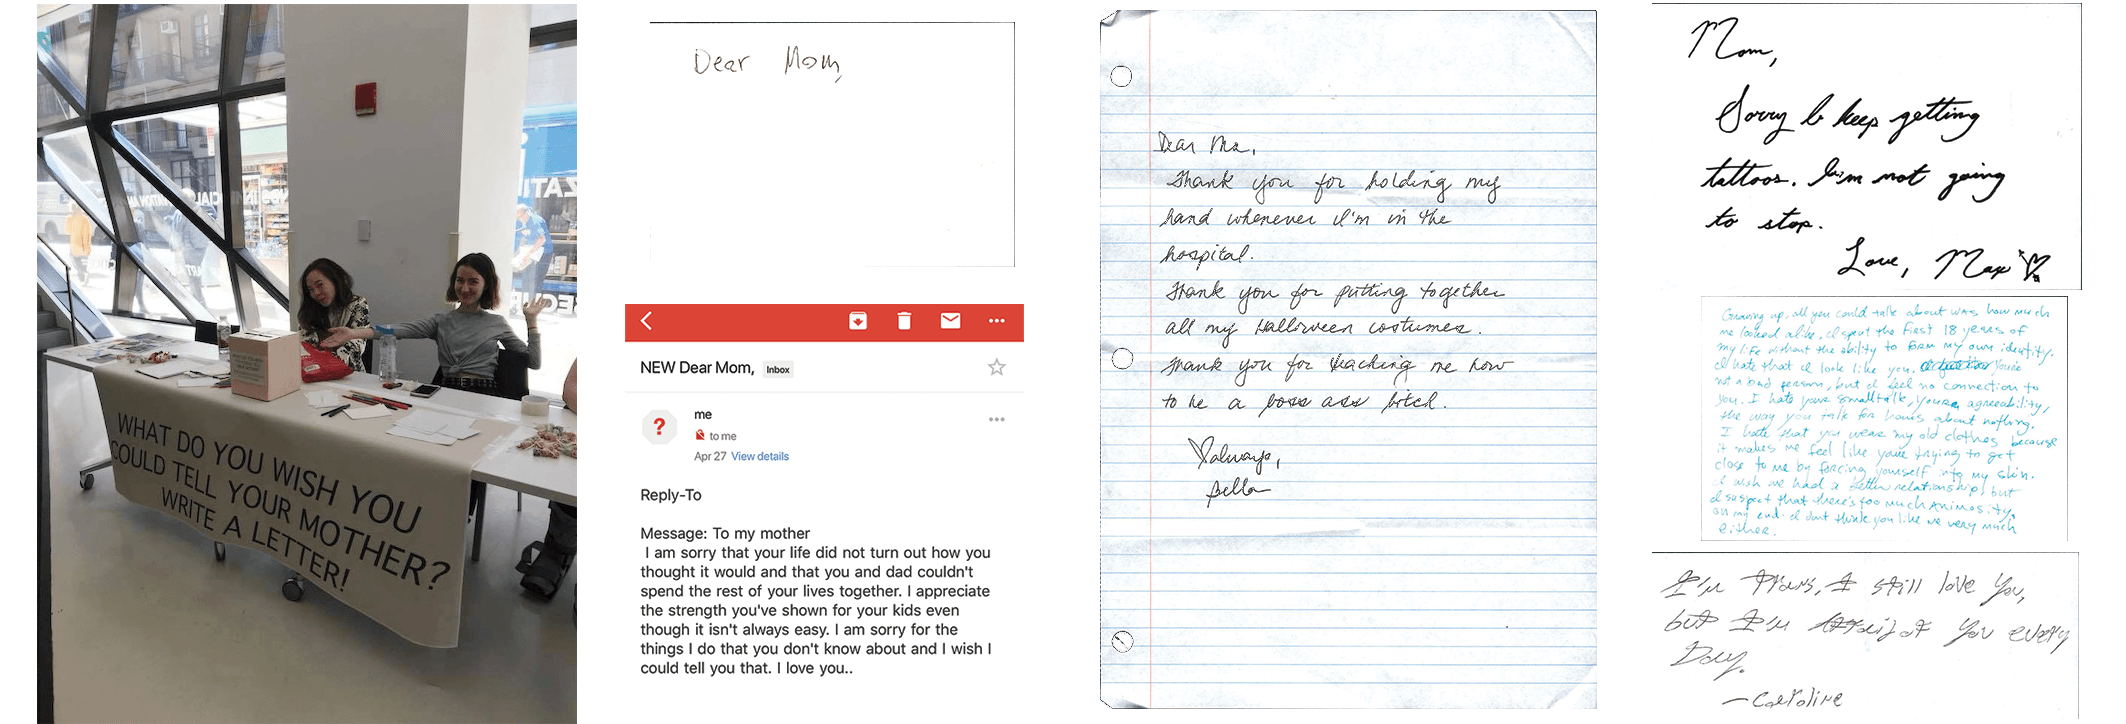 WHAT DO YOU WISH YOU
COULD TELL YOUR MOTHER?
WRITE A LETTER!
Dear Mom,
NEW Dear Mom, Inbox
me
to me
Apr 27 View details
Reply-To
Message: To my mother
I am sorry that your life did not turn out how you
thought it would and that you and dad couldn't
spend the rest of your lives together. I appreciate
the strength you've shown for your kids even
though it isn't always easy. I am sorry for the
things I do that you don't know about and I wish I
could tell you that. I love you..
Dear Ma,
Thank you for holding my
hand whenever I'm in the
hospital.
Thank you for putting together
all my Halloween costumes.
Thank you for teaching me how
to be a boss ass bitch.
always,
Bella
Mom,
Sorry I keep getting
tattoos. I'm not going
to stop.
Love, Max
Growing up, all you could talk about was how much
we looked alike. I spent the first 18 years of
my life without the ability to form my own identity.
I hate that I look like you. You're
not a bad person, but I feel no connection to
you. I hate your smalltalk, your agreeability,
the way you talk for hours about nothing.
I hate that you wear my old clothes because
it makes me feel like you're trying to get
close to me by forcing yourself into my skin.
I wish we had a better relationship, but
I suspect that there's too much animosity,
on my end. I don't think you like me very much
either.
I'm Trans, I still love you,
but I'm afraid of you every
Day.
—Caroline